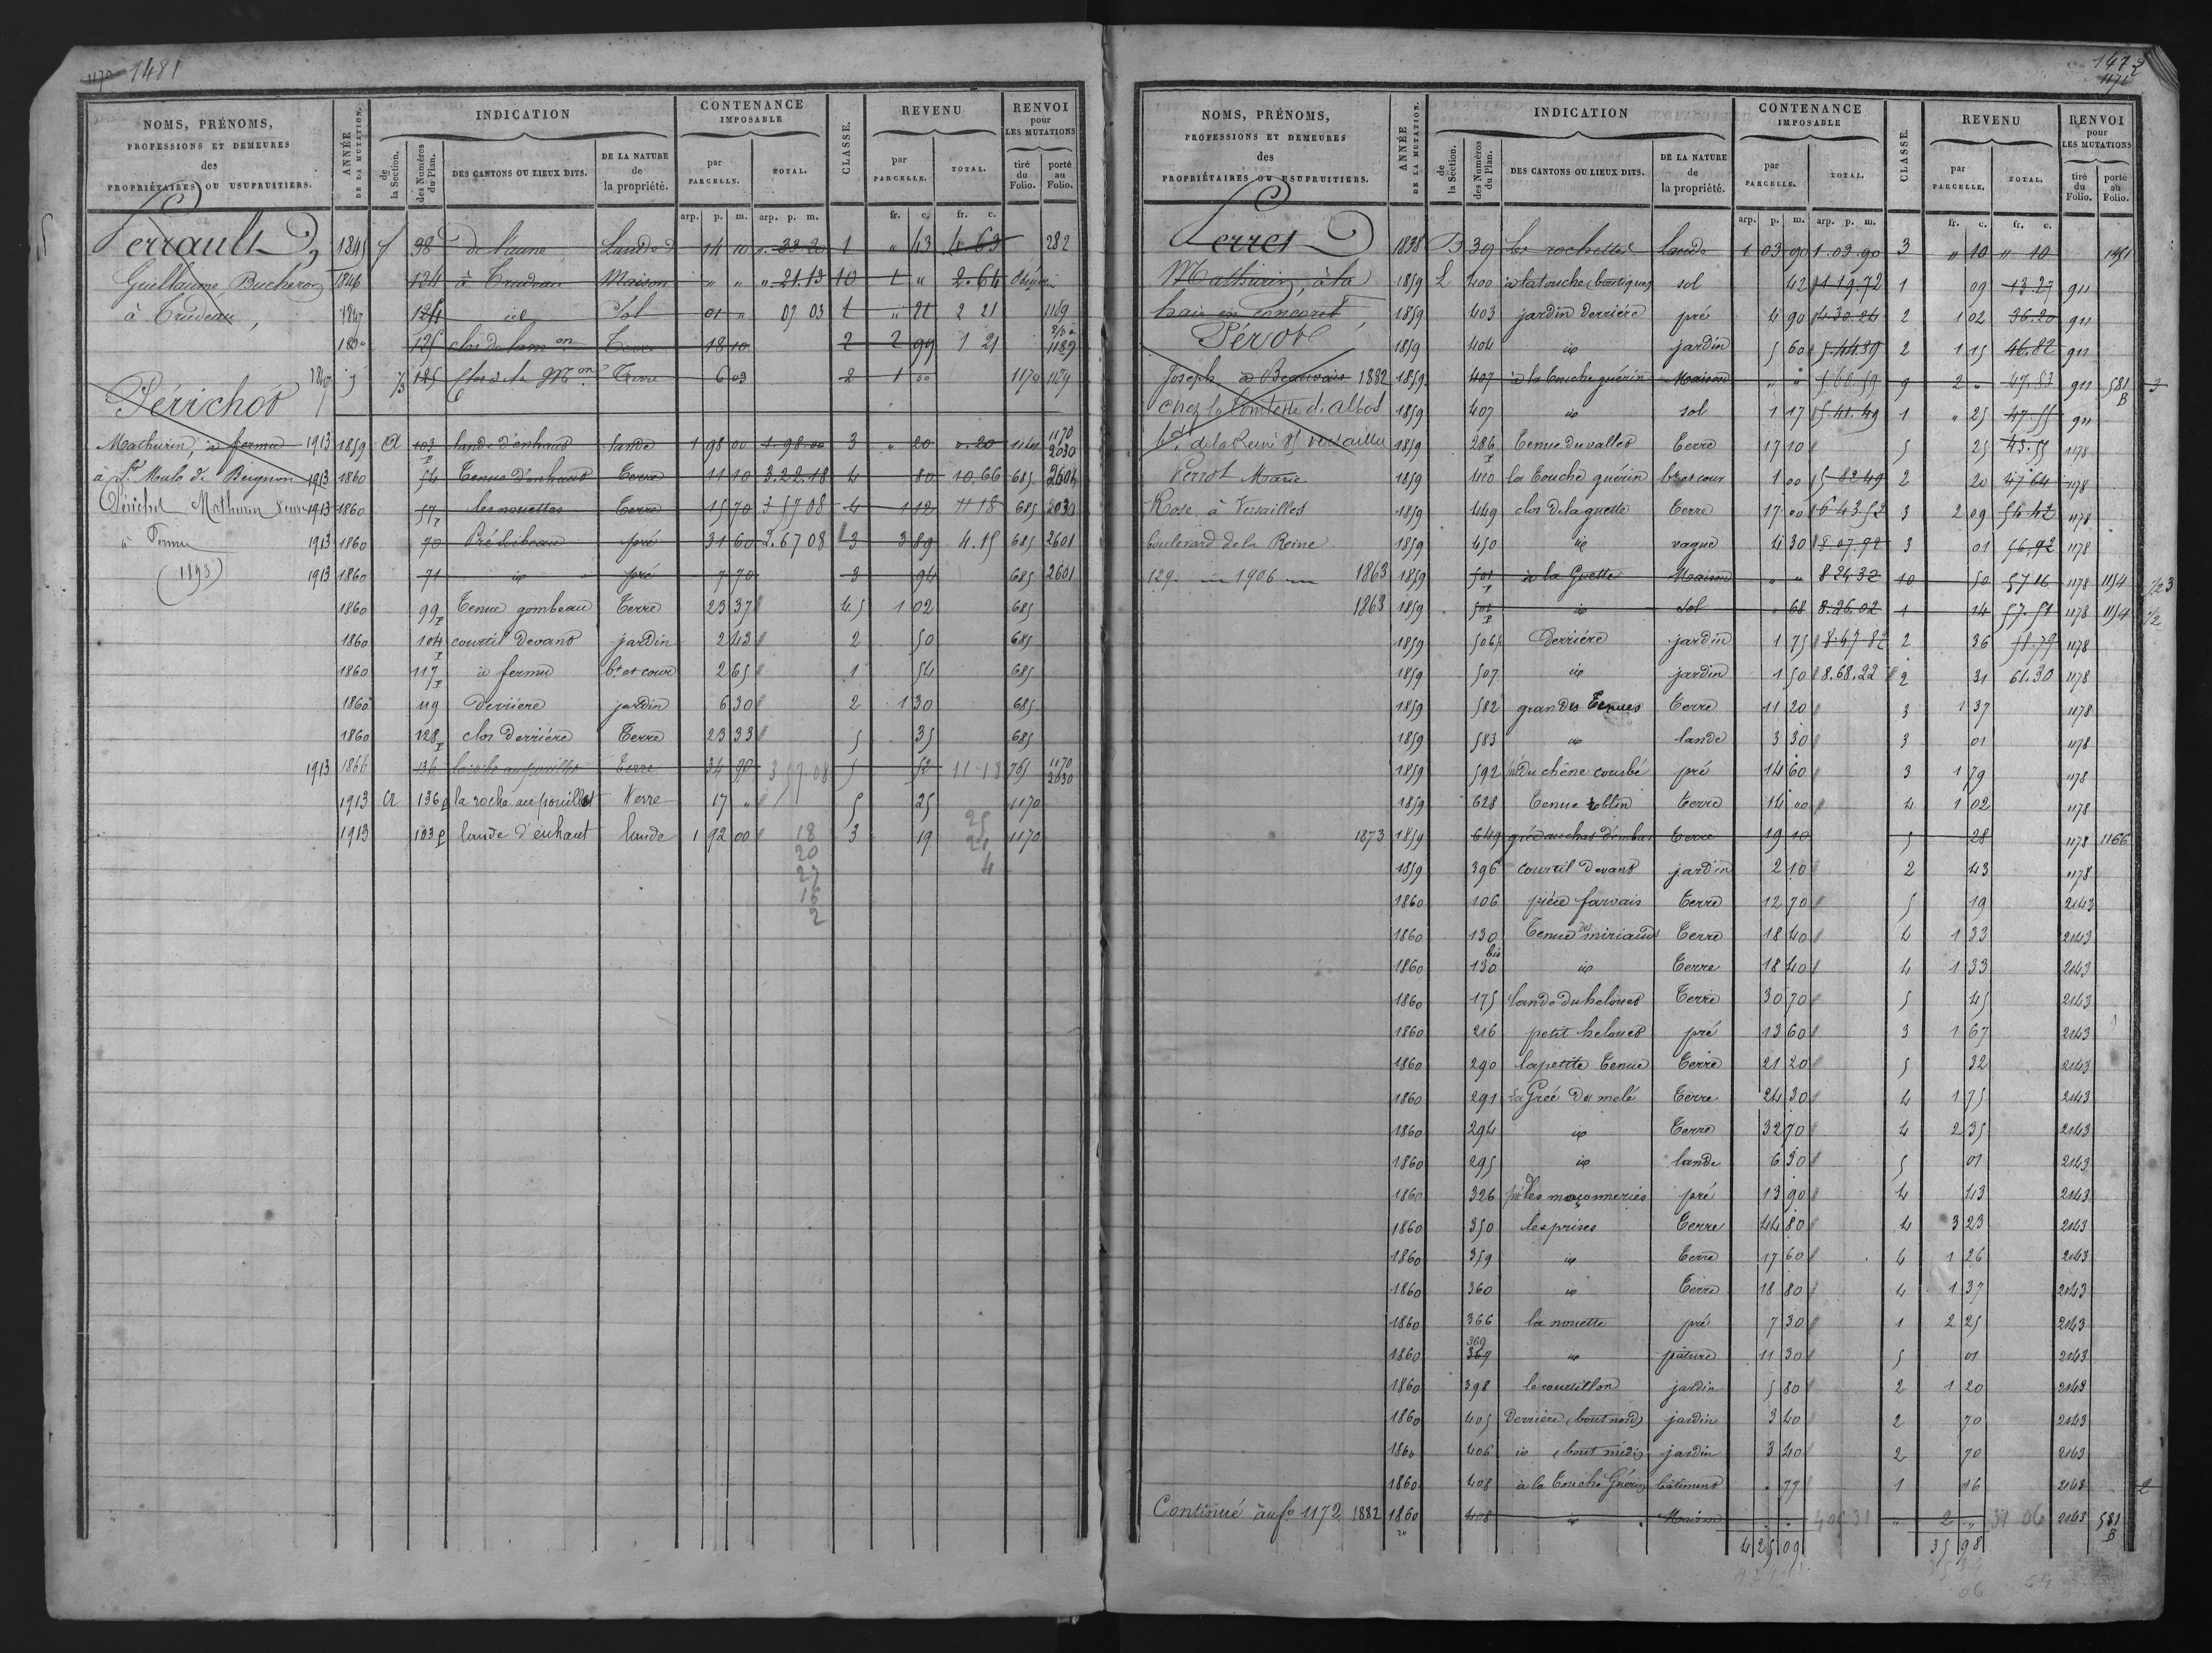 1170 1481
NOMS, PRÉNOMS, PROFESSIONS ET DEMEURES des PROPRIÉTAIRES OU USUFRUITIERS.
ANNÉE DE LA MUTATION.
INDICATION
de la Section.
des Numéros du Plan.
DES CANTONS OU LIEUX DITS.
DE LA NATURE de la propriété.
CONTENANCE IMPOSABLE
par PARCELLE.
TOTAL.
CLASSE.
REVENU
par PARCELLE.
TOTAL.
RENVOI pour LES MUTATIONS
tiré du Folio.
porté au Folio.
arp. p. m. arp. p. m. fr. c. fr. c.
Perrault 1845 98 de l'aune Lande 14 10 33.20 1 " 43 4 63 282
Guillaume Bucheron 1846 124 à Trudeau Maison " " " 21.13 10 1 " 2.64
à Trudeau, 1847 124 id Sol 01 " 07 03 1 " 21 2 21 1189
125 clos de la mon Terre 18 10 2 2 99 1 21 1189
1847 125 Clos de la Mon Terre 6 03 2 1 00 1170 1189
Périchot
Mathurin, à fermu 1913 1859 a 103 P lande d'enhaut lande 1 98 00 1.98.00 3 " 20 0.20 1170 2030
à St Malo de Beignon 1913 1860 54 Tenue d'enhaut Terre 11 10 3.22.18 4 80 10,66 685 2601
Périchot Mathurin 1913 1860 57 P les nouettes Terre 15 70 3 57 08 4 1 12 11 18 685 2030
à Fermu 1913 1860 70 Pré Libeau pré 31 60 2.67 08 3 3 89 4.15 685 2601
(1893) 1913 1860 71 id pré 7 70 3 94 685 2601
1860 99 P Tenue gombeau Terre 23 37 4 5 1 02 685
1860 104 P courtil devant jardin 2 43 2 50 685
1860 117 P à fermu bt et cour 2 65 1 54 685
1860 119 derriere jardin 6 30 2 1 30 685
1860 128 P clos derriére Terre 23 33 5 35 685
1913 1866 136 Terre 34 90 3 57.08 5 52 11-18 751 1170 2030
1913 a 136 p la roche au pouillot Terre 17 " 5 25 1170
1913 103 p lande d'enhaut lande 1 92 00 3 19 1170
18
20
27
16
2
25
21
4
1472
1171
NOMS, PRÉNOMS, PROFESSIONS ET DEMEURES des PROPRIÉTAIRES OU USUFRUITIERS.
ANNÉE DE LA MUTATION.
INDICATION
de la Section.
des Numéros du Plan.
DES CANTONS OU LIEUX DITS.
DE LA NATURE de la propriété.
CONTENANCE IMPOSABLE
par PARCELLE.
TOTAL.
CLASSE.
REVENU
par PARCELLE.
TOTAL.
RENVOI pour LES MUTATIONS
tiré du Folio.
porté au Folio.
arp. p. m. arp. p. m. fr. c. fr. c.
Perret 1838 39 Les rochettes lande 1 03 90 1.03.90 3 " 10 " 10
Mathurin, à la 1859 L 400 à la touche (boutique) sol 42 11 19.72 1 09 13.27 911
hais en Concoret 1859 403 jardin derriére pré 4 90 4.30.24 2 1 02 36.20 911
Pérot 1859 404 id jardin 5 60 5.44 89 2 1 15 46.82 911
Joseph à Beauvais 1882 1859 407 à la touche guérin Maison " " 9 2 " 47.53 911 581 B 3
chez la Comtesse d'Albot 1859 407 id sol 1 17 5.41.49 1 " 25 47.55 911
bd de la Reine 85 Versailles 1859 286 P Tenue du vallet Terre 17 10 5 25 45.55 1178
Perrot Marie 1859 410 la touche guérin bt et cour 1 00 5 82 49 2 20 47 64 1178
Rose à Versailles 1859 449 clos de la guette Terre 17 00 6 43 52 3 2 09 54 42 1178
boulevard de la Reine 1859 450 id vague 4 30 8 07.92 3 01 56,92 1178
129. 1906 1863 1859 501 P à la Guette Maison " " 8 24 32 10 50 57 16 1178 1154 1/2 3
1863 1859 501 P id Sol " 68 8.26.02 1 14 57.51 1178 1154 1/2
1859 506 P derriére jardin 1 75 8.47.82 2 36 1178
1859 507 id jardin 1 50 8.68.22 2 31 61.30 1178
1859 582 grandes Tenues Terre 11 20 3 1 37 1178
1859 583 id lande 3 30 3 01 1178
1859 592 pré du chêne courbé pré 14 60 3 1 79 1178
1859 628 Tenue roblin Terre 14 00 4 1 02 1178
1873 1859 649 Terre 19 10 5 28 1178 1166
1859 396 courtil devant jardin 2 10 2 43 1178
1860 106 piéce farvais Terre 12 70 5 19 2143
1860 130 Tenue des miriauds Terre 18 40 4 1 33 2143
1860 130 bis id Terre 18 40 4 1 33 2143
1860 175 lande du helouet Terre 30 70 5 45 2143
1860 216 petit helouet pré 13 60 3 1 67 2143
1860 290 la petite Tenue Terre 21 20 5 32 2143
1860 291 La Gréé du molé Terre 24 30 4 1 75 2143
1860 294 id Terre 32 70 4 2 35 2143
1860 295 id lande 6 30 5 01 2143
1860 326 pré les maçonneries pré 13 90 4 43 2143
1860 350 les prises Terre 44 80 4 3 23 2143
1860 359 id Terre 17 60 4 1 26 2143
1860 360 id Terre 18 80 4 1 37 2143
1860 366 la nouette pré 7 30 1 2 25 2143
1860 369 367 id pâture 11 30 5 01 2143
1860 398 le courtillon jardin 5 80 2 1 20 2143
1860 405 Derriére (bout nord) jardin 3 40 2 70 2143
1860 406 id (bout midi) jardin 3 40 2 70 2143
1860 408 à la Touche Guérin bâtiment " 77 1 16 2143 2
Continué au fo 1172 1882 1860 408 id Maison " " " 2 " 31 06 2143 581 B
4 25 09 35 98
06 64